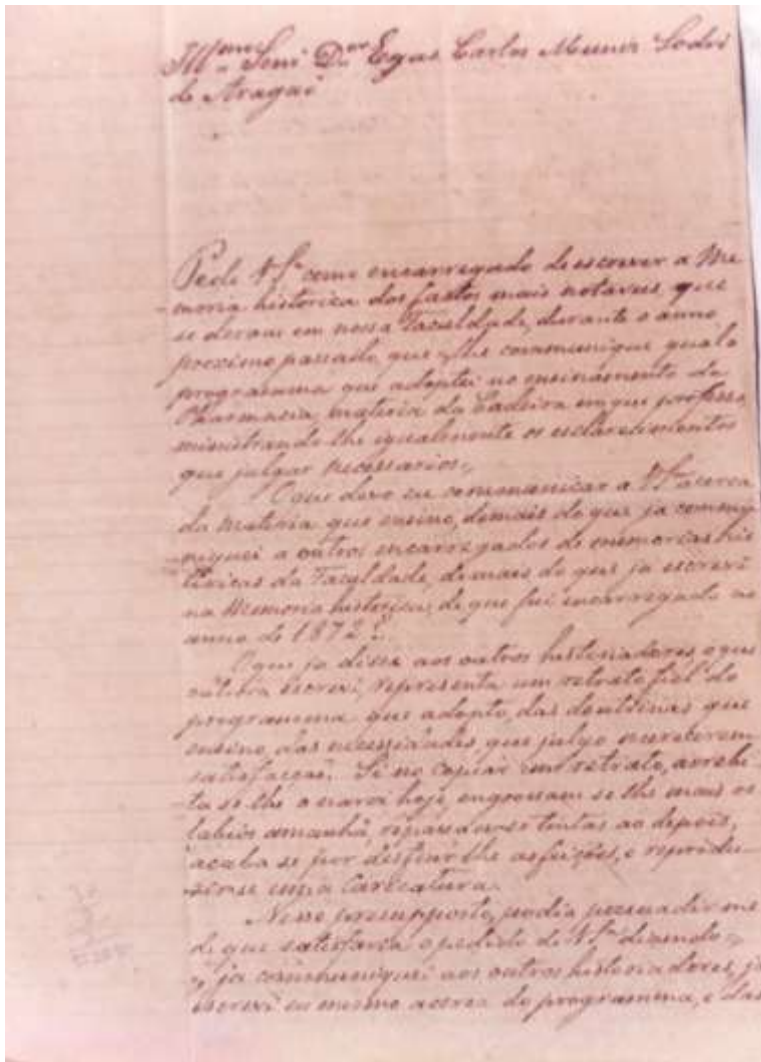 Ill.mo Senr. Dor. Egas Carlos Muniz Sodré
de Aragaõ
Pede V.Sa. como encarregado de escrever a Me-
moria historica dos factos mais notaveis que
se deraõ em nossa Faculdade, durante o anno
proximo passado, que lhe communique qual o
programma que adoptei no ensinamento da
Pharmacia, materia da Cadeira em que professo,
ministrando-lhe igualmente os esclarecimentos
que julgar necessarios.
O que devo eu communicar a V.Sa. acerca
da materia que ensino, demais do que ja commu-
niquei a outros encarregados de memorias his-
toricas da Faculdade, demais do que ja escrevi
na Memoria historica, de que fui encarregado no
anno de 1872?
O que ja disse aos outros historiadores, o que
escrevi, representa um retrato fiel do
programma que adopto, das doutrinas que
ensino, das necessidades, que julgo merecerem
satisfacçaõ. Se no copiar um retrato, arrebi-
ta-se-lhe o nariz hoje, engrossam-se-lhe mais os
labios amanhã, as tintas ao depois,
acaba-se por as feições, e reprodu-
zir-se uma Caricatura.
Nesse presupposto, podia persuadir-me
de que satisfaria o pedido de V.Sa. dizendo =
ja communiquei aos outros historiadores, ja
escrevi eu mesmo acerca do programma, e das